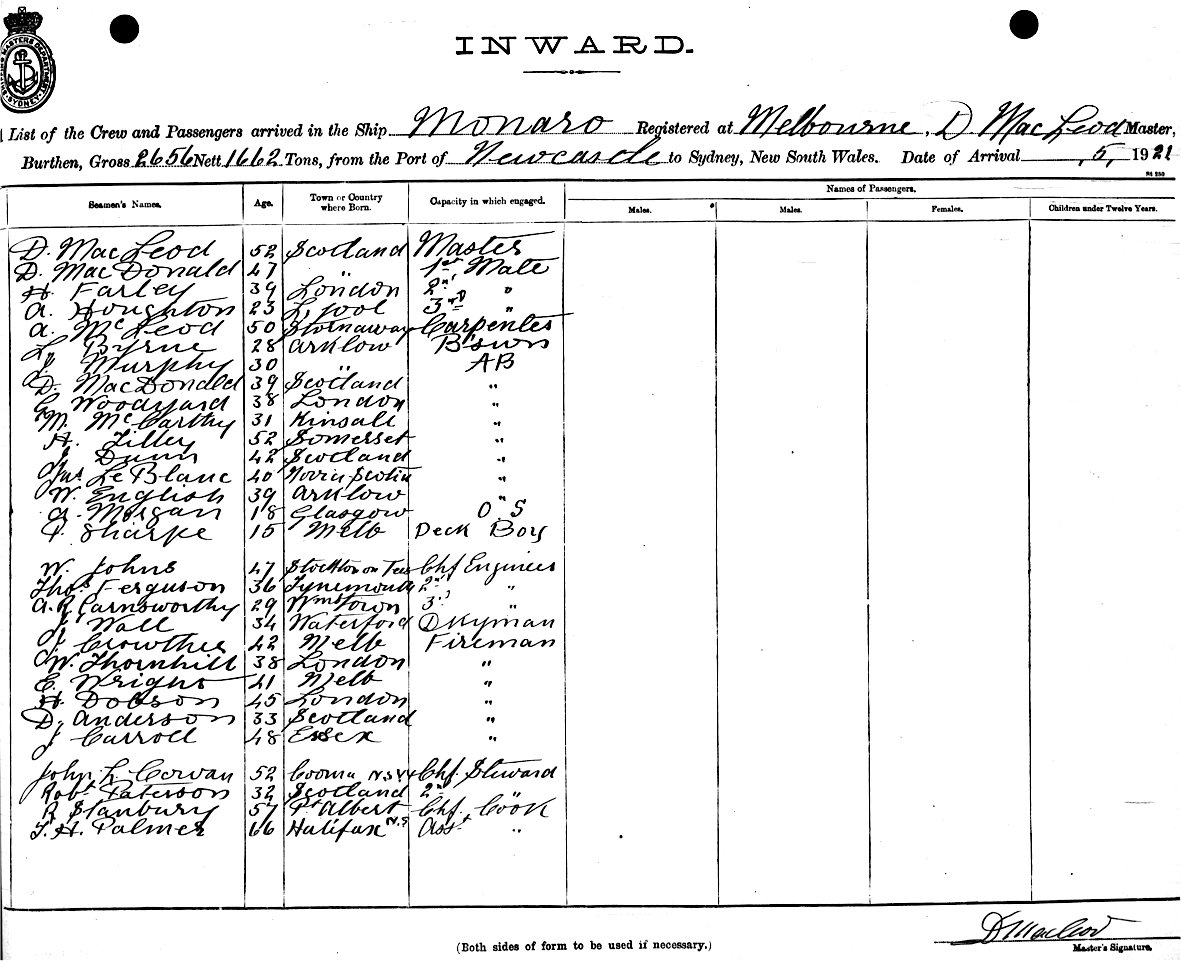 INWARD.
List of the Crew and Passengers arrived in the Ship Monaro Registered at Melbourne, D MacLeod Master,
Burthen, Gross 2656 Nett 1662 Tons, from the Port of Newcastle to Sydney, New South Wales. Date of Arrival ,5, 1921
Seamen's Names. Age. Town or Country where Born. Capacity in which engaged. Names of Passengers.
Males. Males. Females. Children under Twelve Years.
D. MacLeod 52 Scotland Master
D. MacDonald 47 " 1st Mate
H. Farley 39 London 2nd "
A. Houghton 23 L'pool 3rd "
A. McLeod 50 Stornaway Carpenter
L. Byrne 28 Arklow B'swn
Murphy 30 " AB
D. MacDonald 39 Scotland "
G Woodyard 38 London "
M. McCarthy 31 Kinsall "
H. Tilley 52 Somerset "
J Dunn 42 Scotland "
Jas LeBlanc 40 Novia Scotia "
W. English 39 Arklow "
A. Morgan 18 Glasgow O.S
Sharpe 15 Melb Deck Boy
W. Johns 47 Stockton on Tees Chf Engineer
Thos Ferguson 36 Tynemouth 2nd "
A.R. Garnsworthy 29 Wmstown 3rd "
J Wall 34 Waterford Dkyman
J Crowther 42 Melb Fireman
W. Thornhill 38 London "
E. Wright 41 Melb "
H. Dobson 45 London "
D. Anderson 33 Scotland "
J Carroll 48 Essex "
John L Cowan 52 Cooma NSW Chf. Steward
Robt Paterson 32 Scotland 2nd "
R Stanbury 57 Pt Albert Chf. Cook
T. H. Palmer 66 Halifax N.S Asst "
D MacLeod
(Both sides of form to be used if necessary.) Master's Signature.